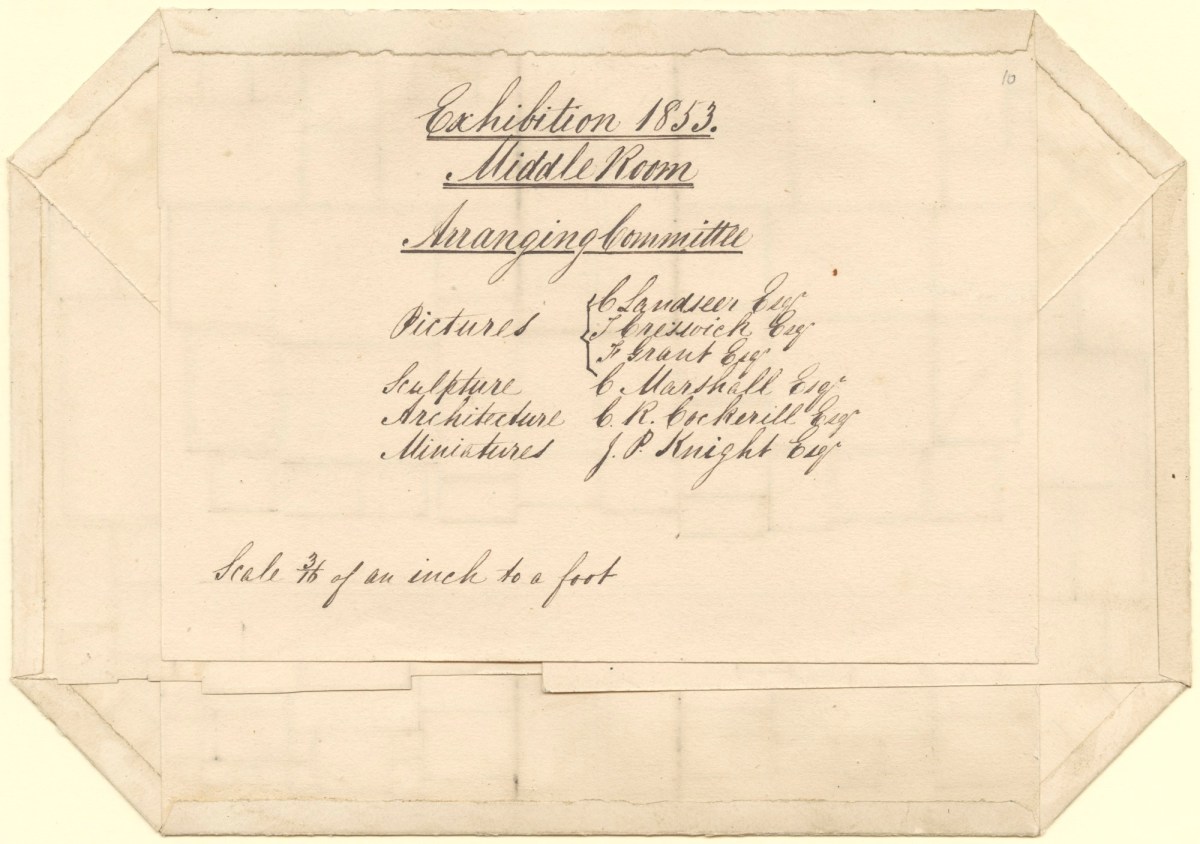 10
Exhibition 1853.
Middle Room
Arranging Committee
Pictures { C Landseer Esqr
T Creswick Esqr
F Grant Esqr
Sculpture C Marshall Esqr
Architecture C. R. Cockerill Esqr
Miniatures J. P. Knight Esqr
Scale 3/16 of an inch to a foot